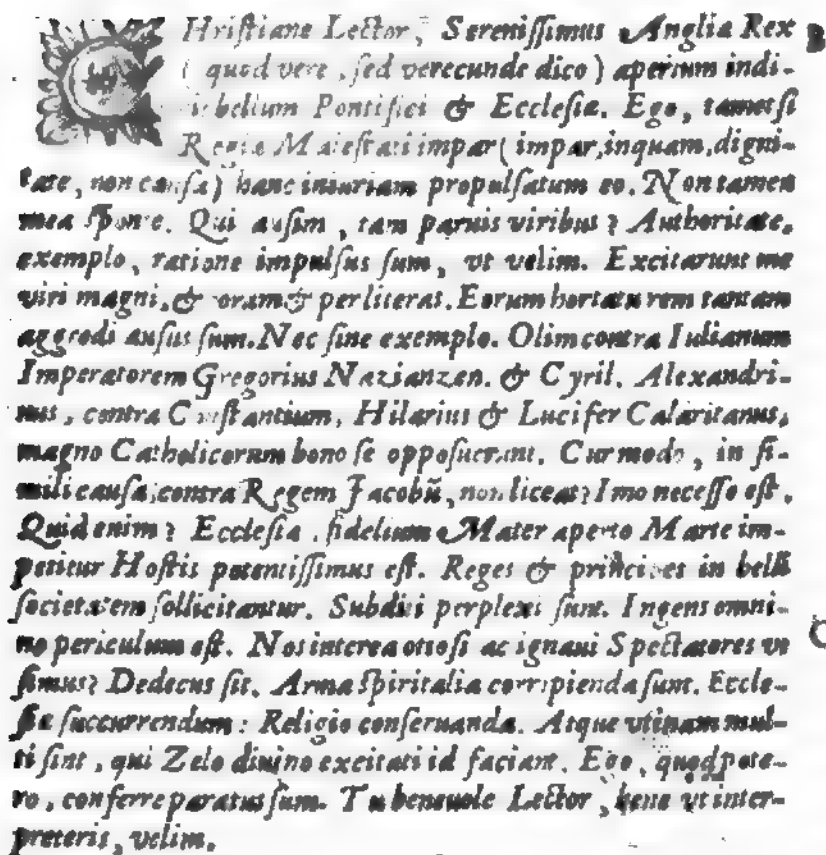 CHriſtiane Lector, Sereniſſimus Angliæ Rex
(quod vere, ſed verecunde dico) apertum indi-
cit bellum Pontifici & Eccleſiæ. Ego, tametſi
Regiæ Maieſtati impar (impar, inquam, digni-
tate, non cauſa) hanc iniuriam propulſatum eo. Non tamen
mea ſponte. Qui auſim, tam paruis viribus? Authoritate,
exemplo, ratione impulſus ſum, vt velim. Excitarunt me
viri magni, & coram & per literas. Eorum hortatu rem tantam
aggredi auſus ſum. Nec ſine exemplo. Olim contra Iulianum
Imperatorem Gregorius Nazianzen. & Cyril. Alexandri-
nus, contra Conſtantium, Hilarius & Lucifer Calaritanus,
magno Catholicorum bono ſe oppoſuerunt. Cur modo, in ſi-
mili cauſa, contra Regem Jacobū, non liceat? Imo neceſſe eſt.
Quid enim? Eccleſia, fidelium Mater aperto Marte im-
petitur Hoſtis potentiſſimus eſt. Reges & principes in belli
ſocietatem ſollicitantur. Subditi perplexi ſunt. Ingens omni-
no periculum eſt. Nos interea otioſi ac ignaui Spectatores vt
ſimus? Dedecus ſit. Arma ſpiritalia corripienda ſunt. Eccle-
ſiæ ſuccurrendum: Religio conſeruanda. Atque vtinam mul-
ti ſint, qui Zelo diuino excitati id faciant. Ego, quod pote-
ro, conferre paratus ſum. Tu beneuole Lector, bene vt inter-
preteris, velim.